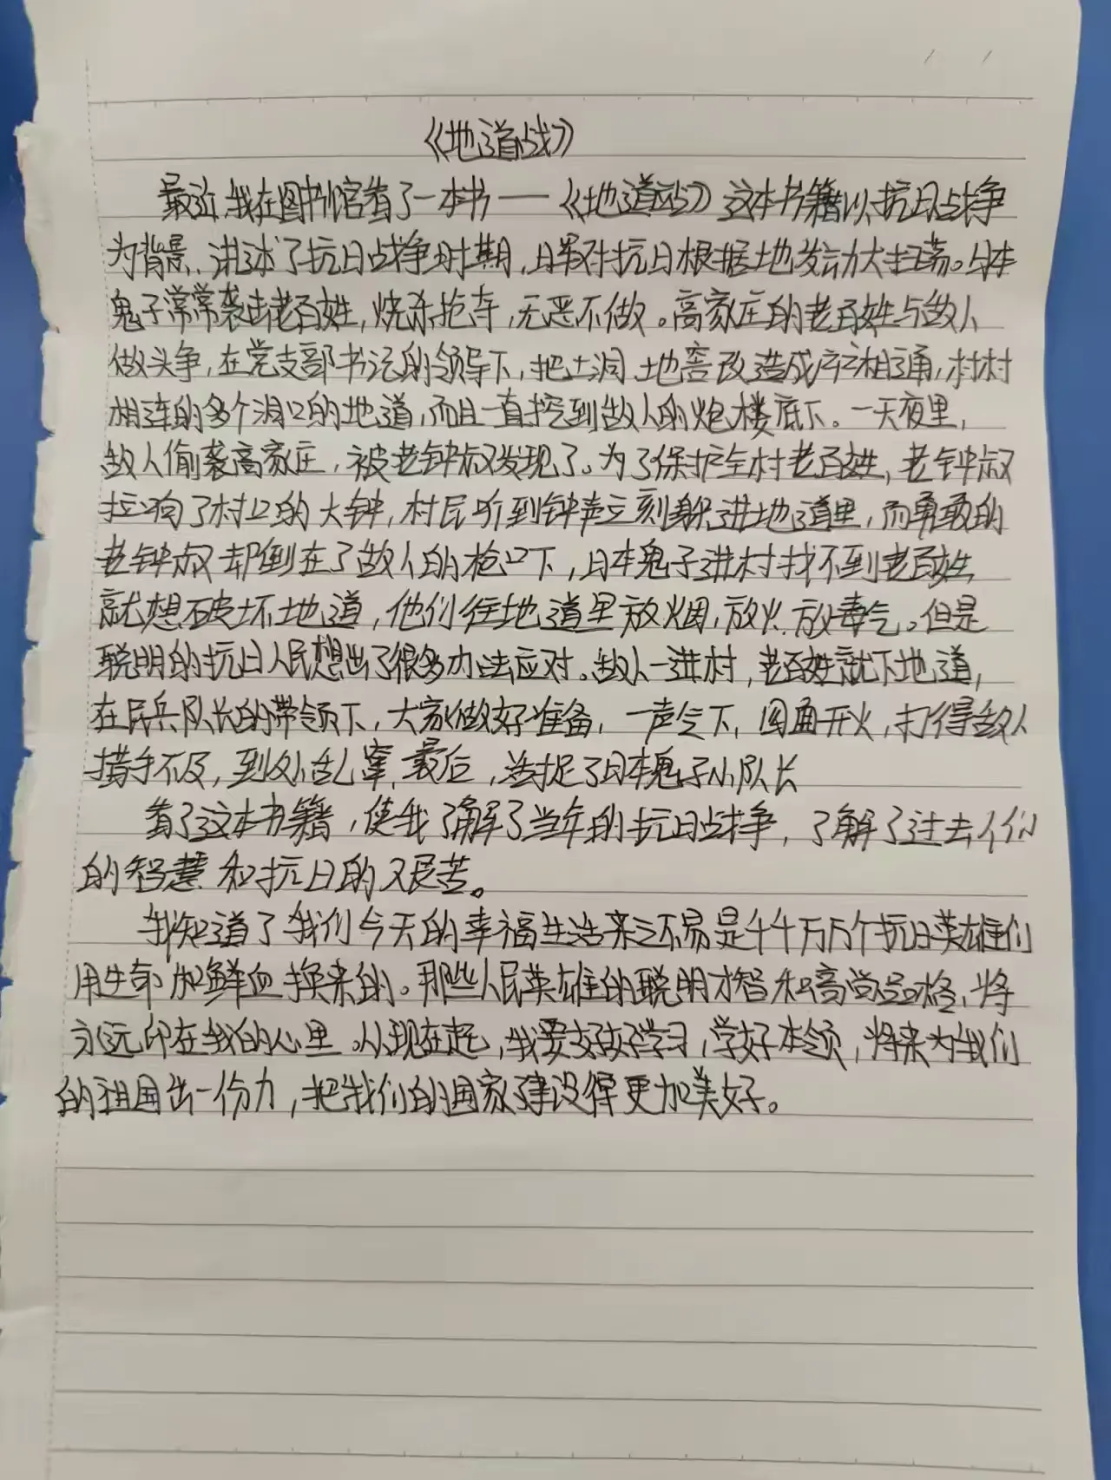 《地道战》
最近,我在图书馆看了一本书——《地道战》这本书籍以抗日战争
为背景,讲述了抗日战争时期,日军对抗日根据地发动大扫荡。日本
鬼子常常袭击老百姓,烧杀抢夺,无恶不做。高家庄的老百姓与敌人
做斗争,在党支部书记的领导下,把土洞、地窖改造成户户相通,村村
相连的多个洞口的地道,而且一直挖到敌人的炮楼底下。一天夜里,
敌人偷袭高家庄,被老钟叔发现了。为了保护全村老百姓,老钟叔
拉响了村口的大钟,村民听到钟声立刻躲进地道里,而勇敢的
老钟叔却倒在了敌人的枪口下,日本鬼子进村找不到老百姓,
就想破坏地道,他们往地道里放烟,放火,放毒气。但是
聪明的抗日人民想出了很多办法应对。敌人一进村,老百姓就下地道,
在民兵队长的带领下,大家做好准备,一声令下,四面开火,打得敌人
措手不及,到处乱窜,最后,活捉了日本鬼子小队长
看了这本书籍,使我了解了当年的抗日战争,了解了过去人们
的智慧和抗日的艰苦。
我知道了我们今天的幸福生活来之不易是千千万万个抗日英雄们
用生命和鲜血换来的。那些人民英雄的聪明才智和高尚品格,将
永远印在我的心里。从现在起,我要好好学习,学好本领,将来为我们
的祖国出一份力,把我们的国家建设得更加美好。